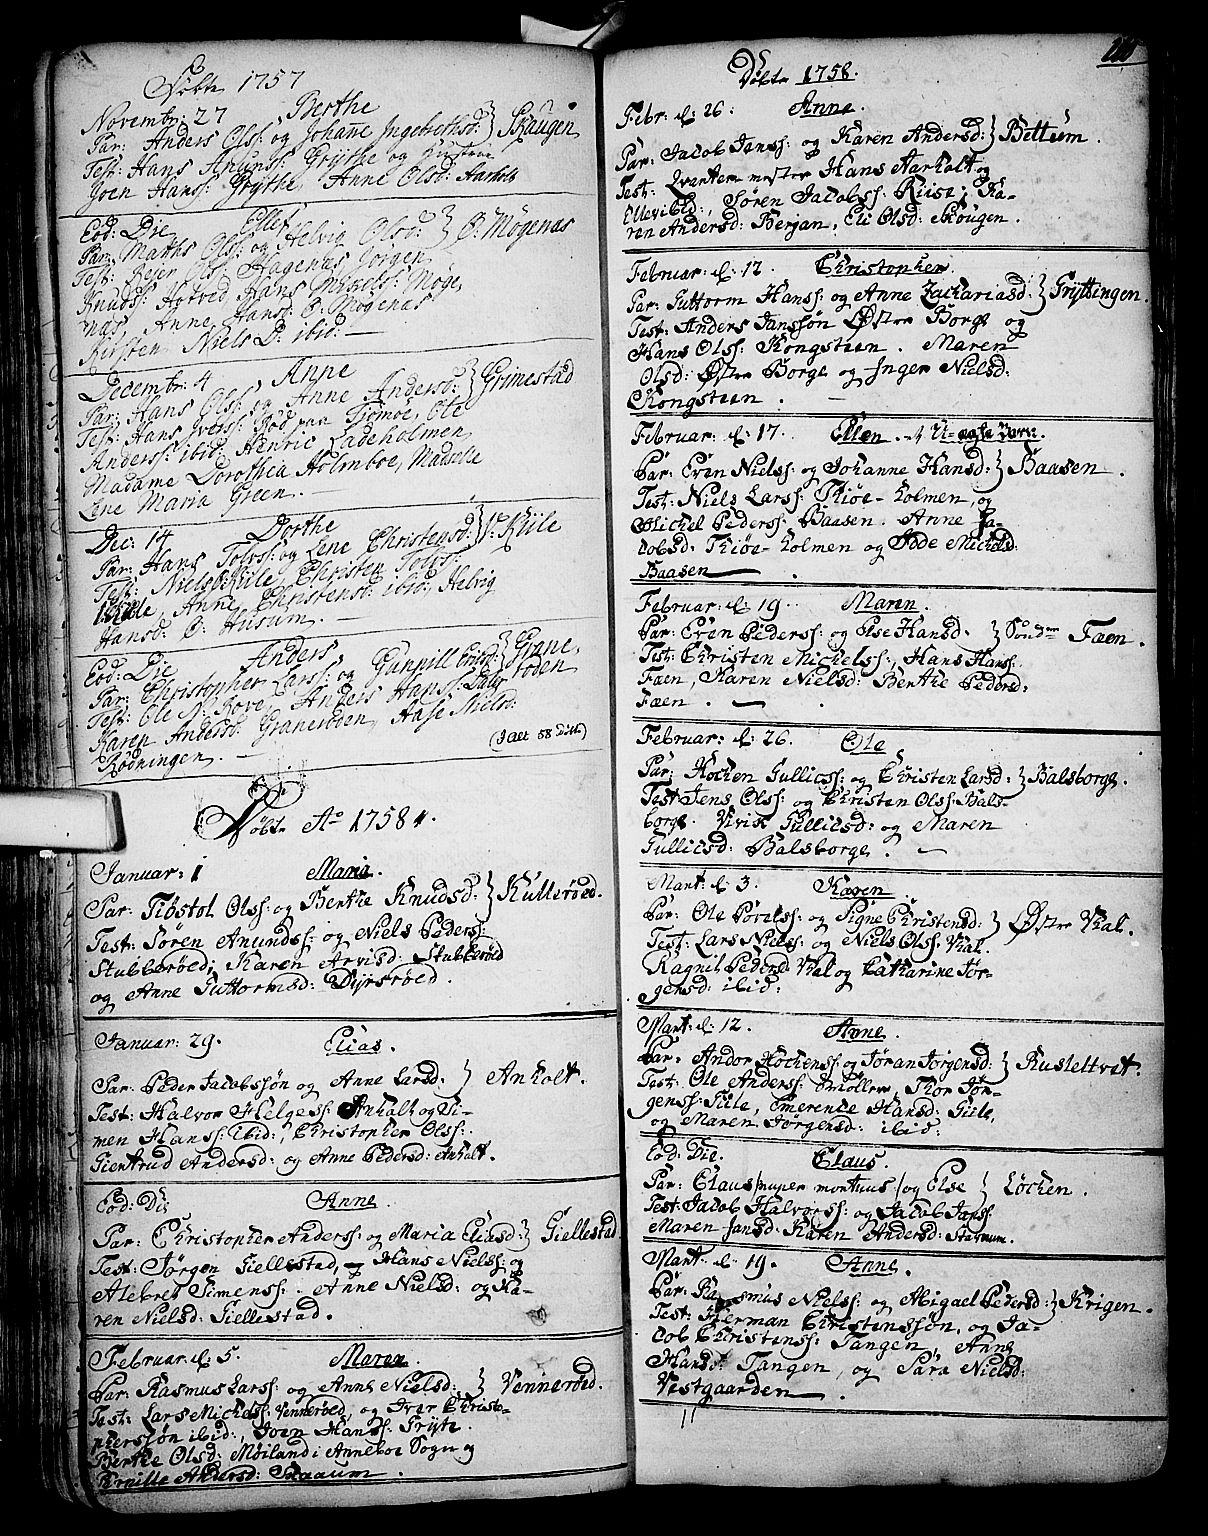 Døbte 1757
Novembr: 27 Berthe
Par: Anders Ols: og Johanne Ingebrethsd: } Skaugen
Test: Hans Amunds: Grythe og Hustrue
Joen Hans: Grythe, Anne Olsd: Aarholt
Eod: Die Ellef
Par: Mathis Ols: og Helvig Olsd: } Ø: Mögenas
Test: Reier Ols: Hagenas, Jørgen
Knuds: Hotved, Hans Mikels: Møge
nas, Anne Hansd: Ø. Mögenas
Kirsten Niels D: ibid: —
Decembr: 4 Anne
Par: Hans Ols: og Anne Andersd: } Grimestad
Test: Hans Ivers: Bød paa Tiømøe, Ole
Anders: ibid, Henric Ladeholmen
Madame Dorothea Holmboe, Madselle
Lene Maria Green. —
Dec: 14 Dorthe
Par: Hans Tolvs: og Lene Christensd: } V: Kiile
Test: Niels Ø. Kiile, Christen Tolvs:
Kiile, Anne Christensd: ibid, Helvig
Hansd: Ø: Husum. —
Eod: Die Anders
Par: Christopher Lars: og Gunnill Eriksd: } Grane
Test: Ole N. Rove, Anders Hans: Labye røden
Karen Andersd: Granerøden, Aase Nielsd:
Rødningen. — (I alt 58 Døbt:)
Døbte Ao 1758
Januar: 1 Maria.
Par: Tiøstol Ols: og Berthe Knudsd: } Kullerøed.
Test: Søren Anunds: og Niels Peders:
Stubberøed; Karen Arvisd: Stubberøed
og Anne Guttormsd: Dyrsrøed.
Januar: 29. Elias.
Par: Peder Jacobssøn og Anne Larsd: } Anholt.
Test: Halvor Helges: Anholt og Si-
men Hanss: ibid:, Christopher Olss:
Giertrud Andersd: og Anne Pedersd: Anholt.
Eod: Die Anne
Par: Christopher Anderss: og Maria Eliasd: } Giellestad.
Test: Jørgen Giellestad, og Hans Nielss: og
Alebret Simenss: . Anne Nielsd: og Ka-
ren Nielsd: Giellestad.
Februar. d: 5. Maren
Par: Rasmus Larss: og Anne Nielsd: } Vennerøed.
Test: Lars Michelss: Vennerøed, og Iver Christo-
phersøn ibid:, Joen Hanss: Fryte.
Berthe Olsd: Møiland i Anneboe Sogn og
Pernille Andersd: Raaum.
210
Døbte 1758.
Febr: d: 26: Anne.
Par: Jacob Janss: og Karen Andersd: } Bettum.
Test: Qvarteer mester Hans Aarholt og
Ellevibld:, Søren Jacobss: Riise; Ka-
ren Andersd: Berjan, Eli Olsd: Skougen.
Februar: d: 12. Christopher.
Par: Guttorm Hanss: og Anne Zachariasd: } Gryttingen.
Test: Anders Janssøn Østre Borge og
Hans Olss: Kongsteen. Maren
Olsd: Østre Borge og Inger Nielsd:
Kongsteen. —
Februar: d: 17. Ellen.
Par: Even Nielss: og Johanne Hansd: } Baasen.
Test: Niels Larss: Thiøe-holmen, og
Michel Pederss: Baasen. Anne Ja-
cobsd: Thiøe-holmen og Idde Michelsd:
Baasen —.
Februar: d: 19. Maren.
Par: Even Pederss: og Else Hansd. } Sønd̅re Faen.
Test: Christen Michelss:, Hans Hanss:
Faen, Karen Nielsd: Berthe Pedersd:
Faen. —
Februar: d: 26. Ole
Par: Hochen Gullicss: og Christen Larsd: } Balsborge.
Test: Jens Olss: og Christen Olss: Bals-
borge. Vivik Gullicsd: og Maren
Gullicsd: Balsborge. —
Mart: d: 3. Karen
Par: Ole Povelss: og Signe Christensd: } Østre Vhal.
Test: Lars Nielss: og Niels Olss: Vhal.
Ragnil Pedersd: Vhal og Catharine Jør-
gensd: ibid:
Mart: d: 12. Anne.
Par: Andor Hochenss: og Jøran Jørgensd: } Rusteltvet.
Test: Ole Anderss: Møller, Thor Jør-
genss: Giile, Emerence Hansd: Giile,
og Maren Jørgensd: ibid:
Eod: Die. Claus.
Par: Claus /nuper mortuus/ og Else } Løchen.
Test: Jacob Halvorss: og Jacob Janss:
Maren Jansd: Karen Andersd: Starum.
Mart: d: 19. Anne.
Par: Rasmus Nielss: og Abigael Pedersd: } Krigen.
Test: Herman Christenssøn, og Ja-
cob Christenss: Tangen, Anne
Hansd: Tangen, og Sara Nielsd:
Vestgaarden.